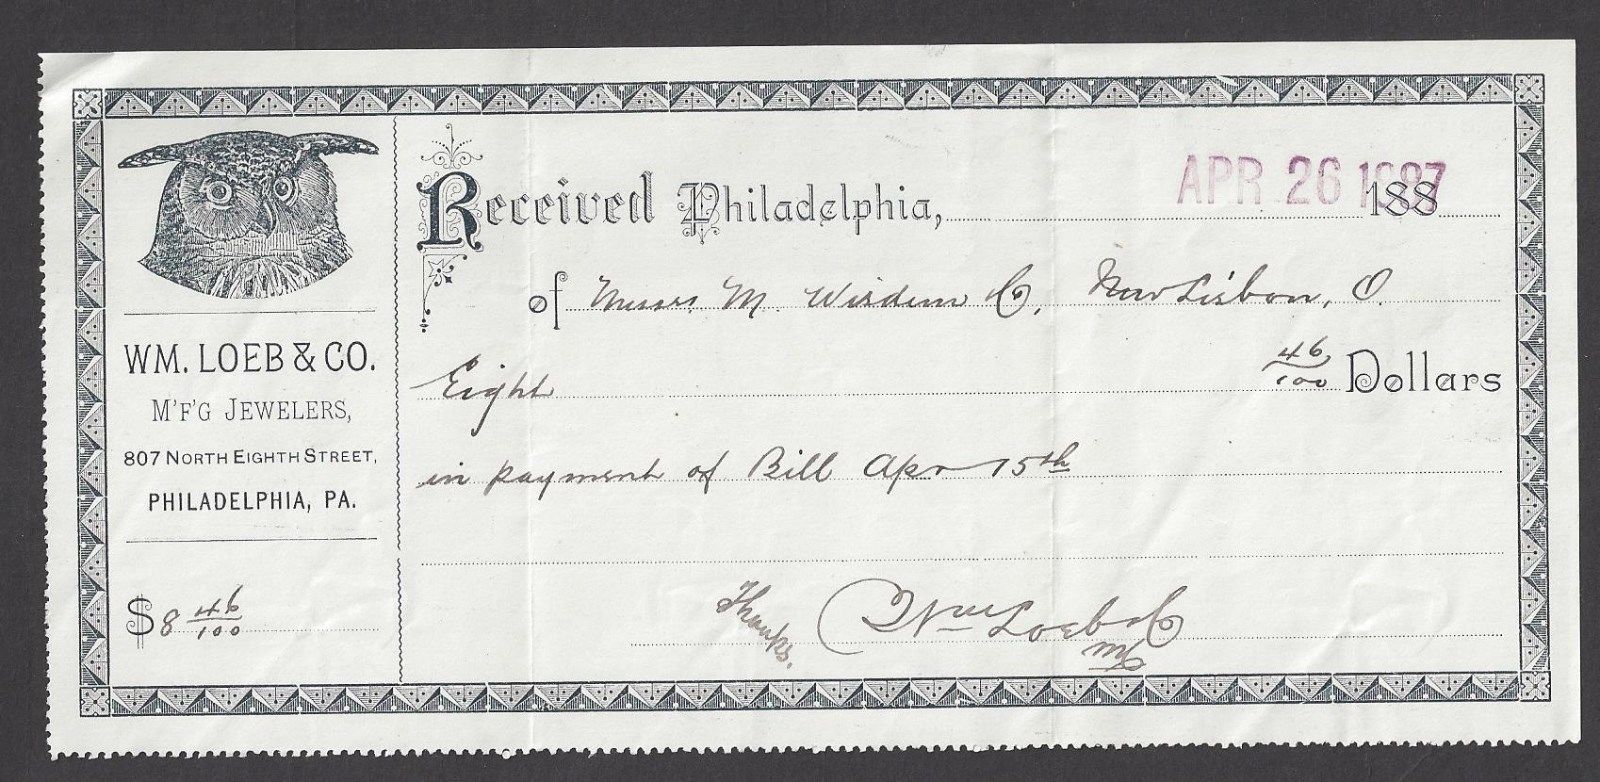 WM. LOEB & CO.
M'F'G JEWELERS,
807 NORTH EIGHTH STREET,
PHILADELPHIA, PA.
$8 46/100
Received Philadelphia, APR 26 1887 188
of Messrs. M. Wisdem & Co, New Lisbon, O.
Eight 46/100 Dollars
in payment of Bill Apr 15th
Thanks. Wm Loeb & Co